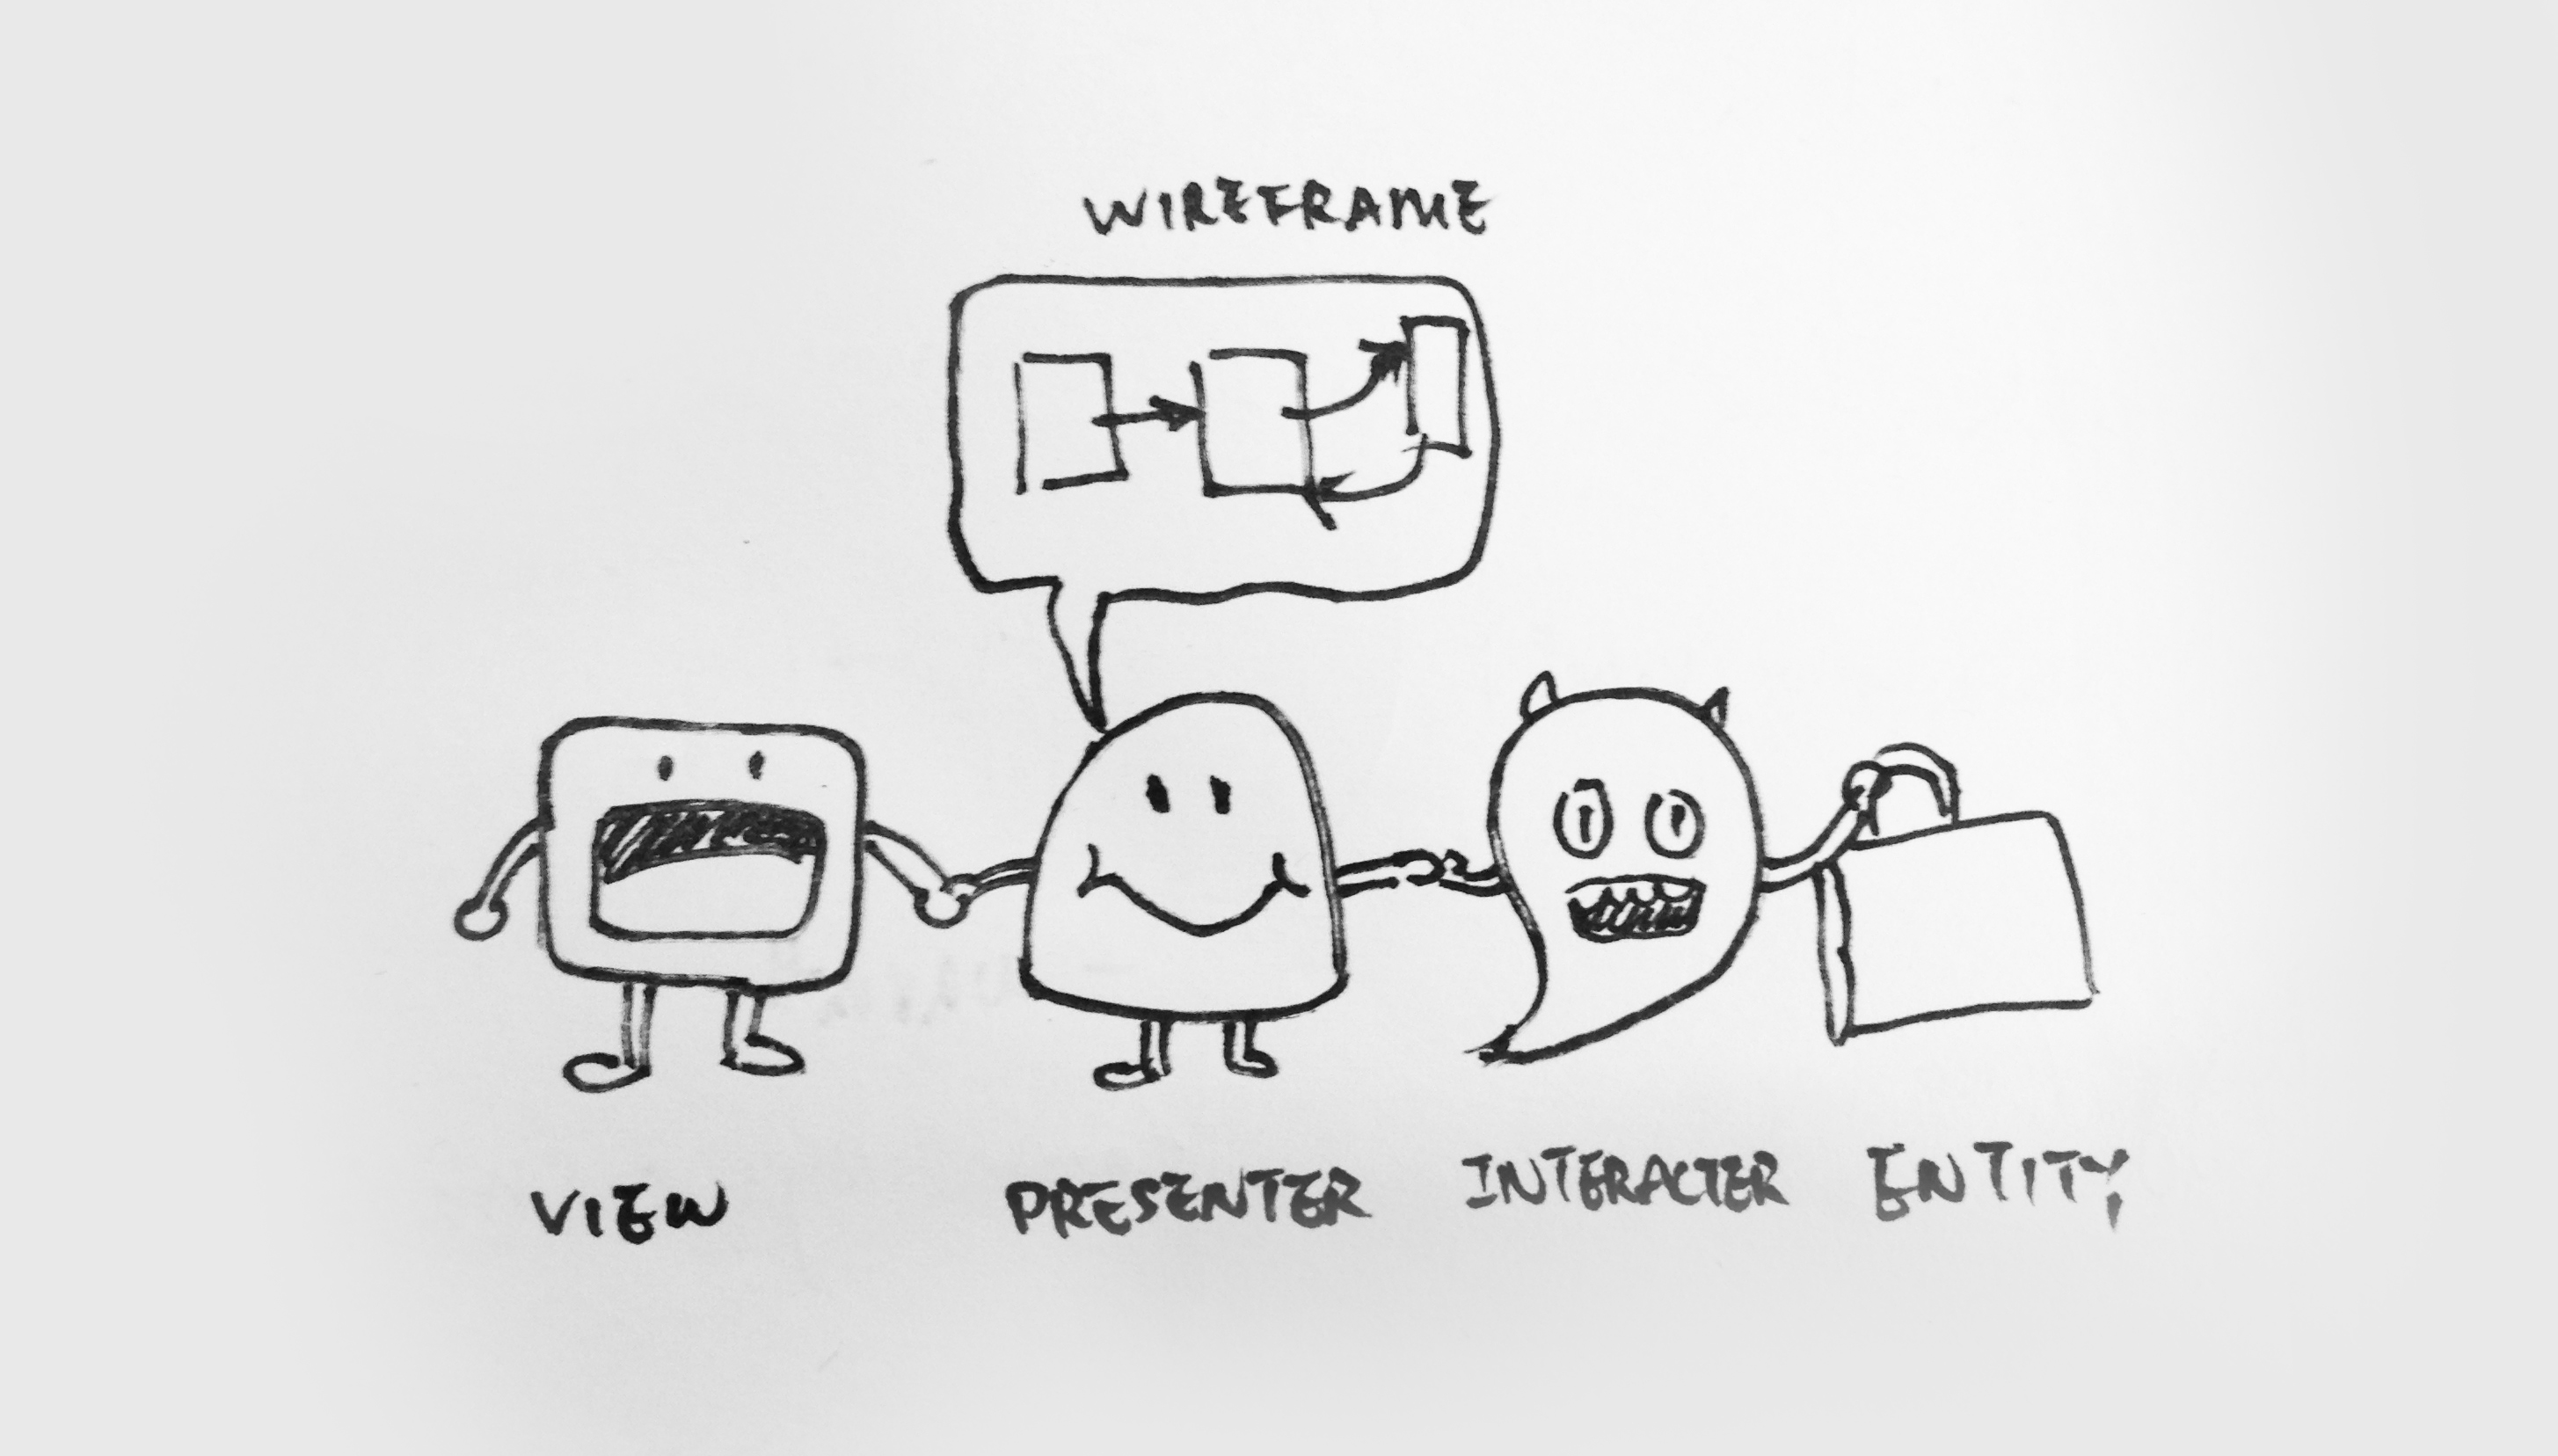 WIREFRAME
VIEW PRESENTER INTERACTER ENTITY